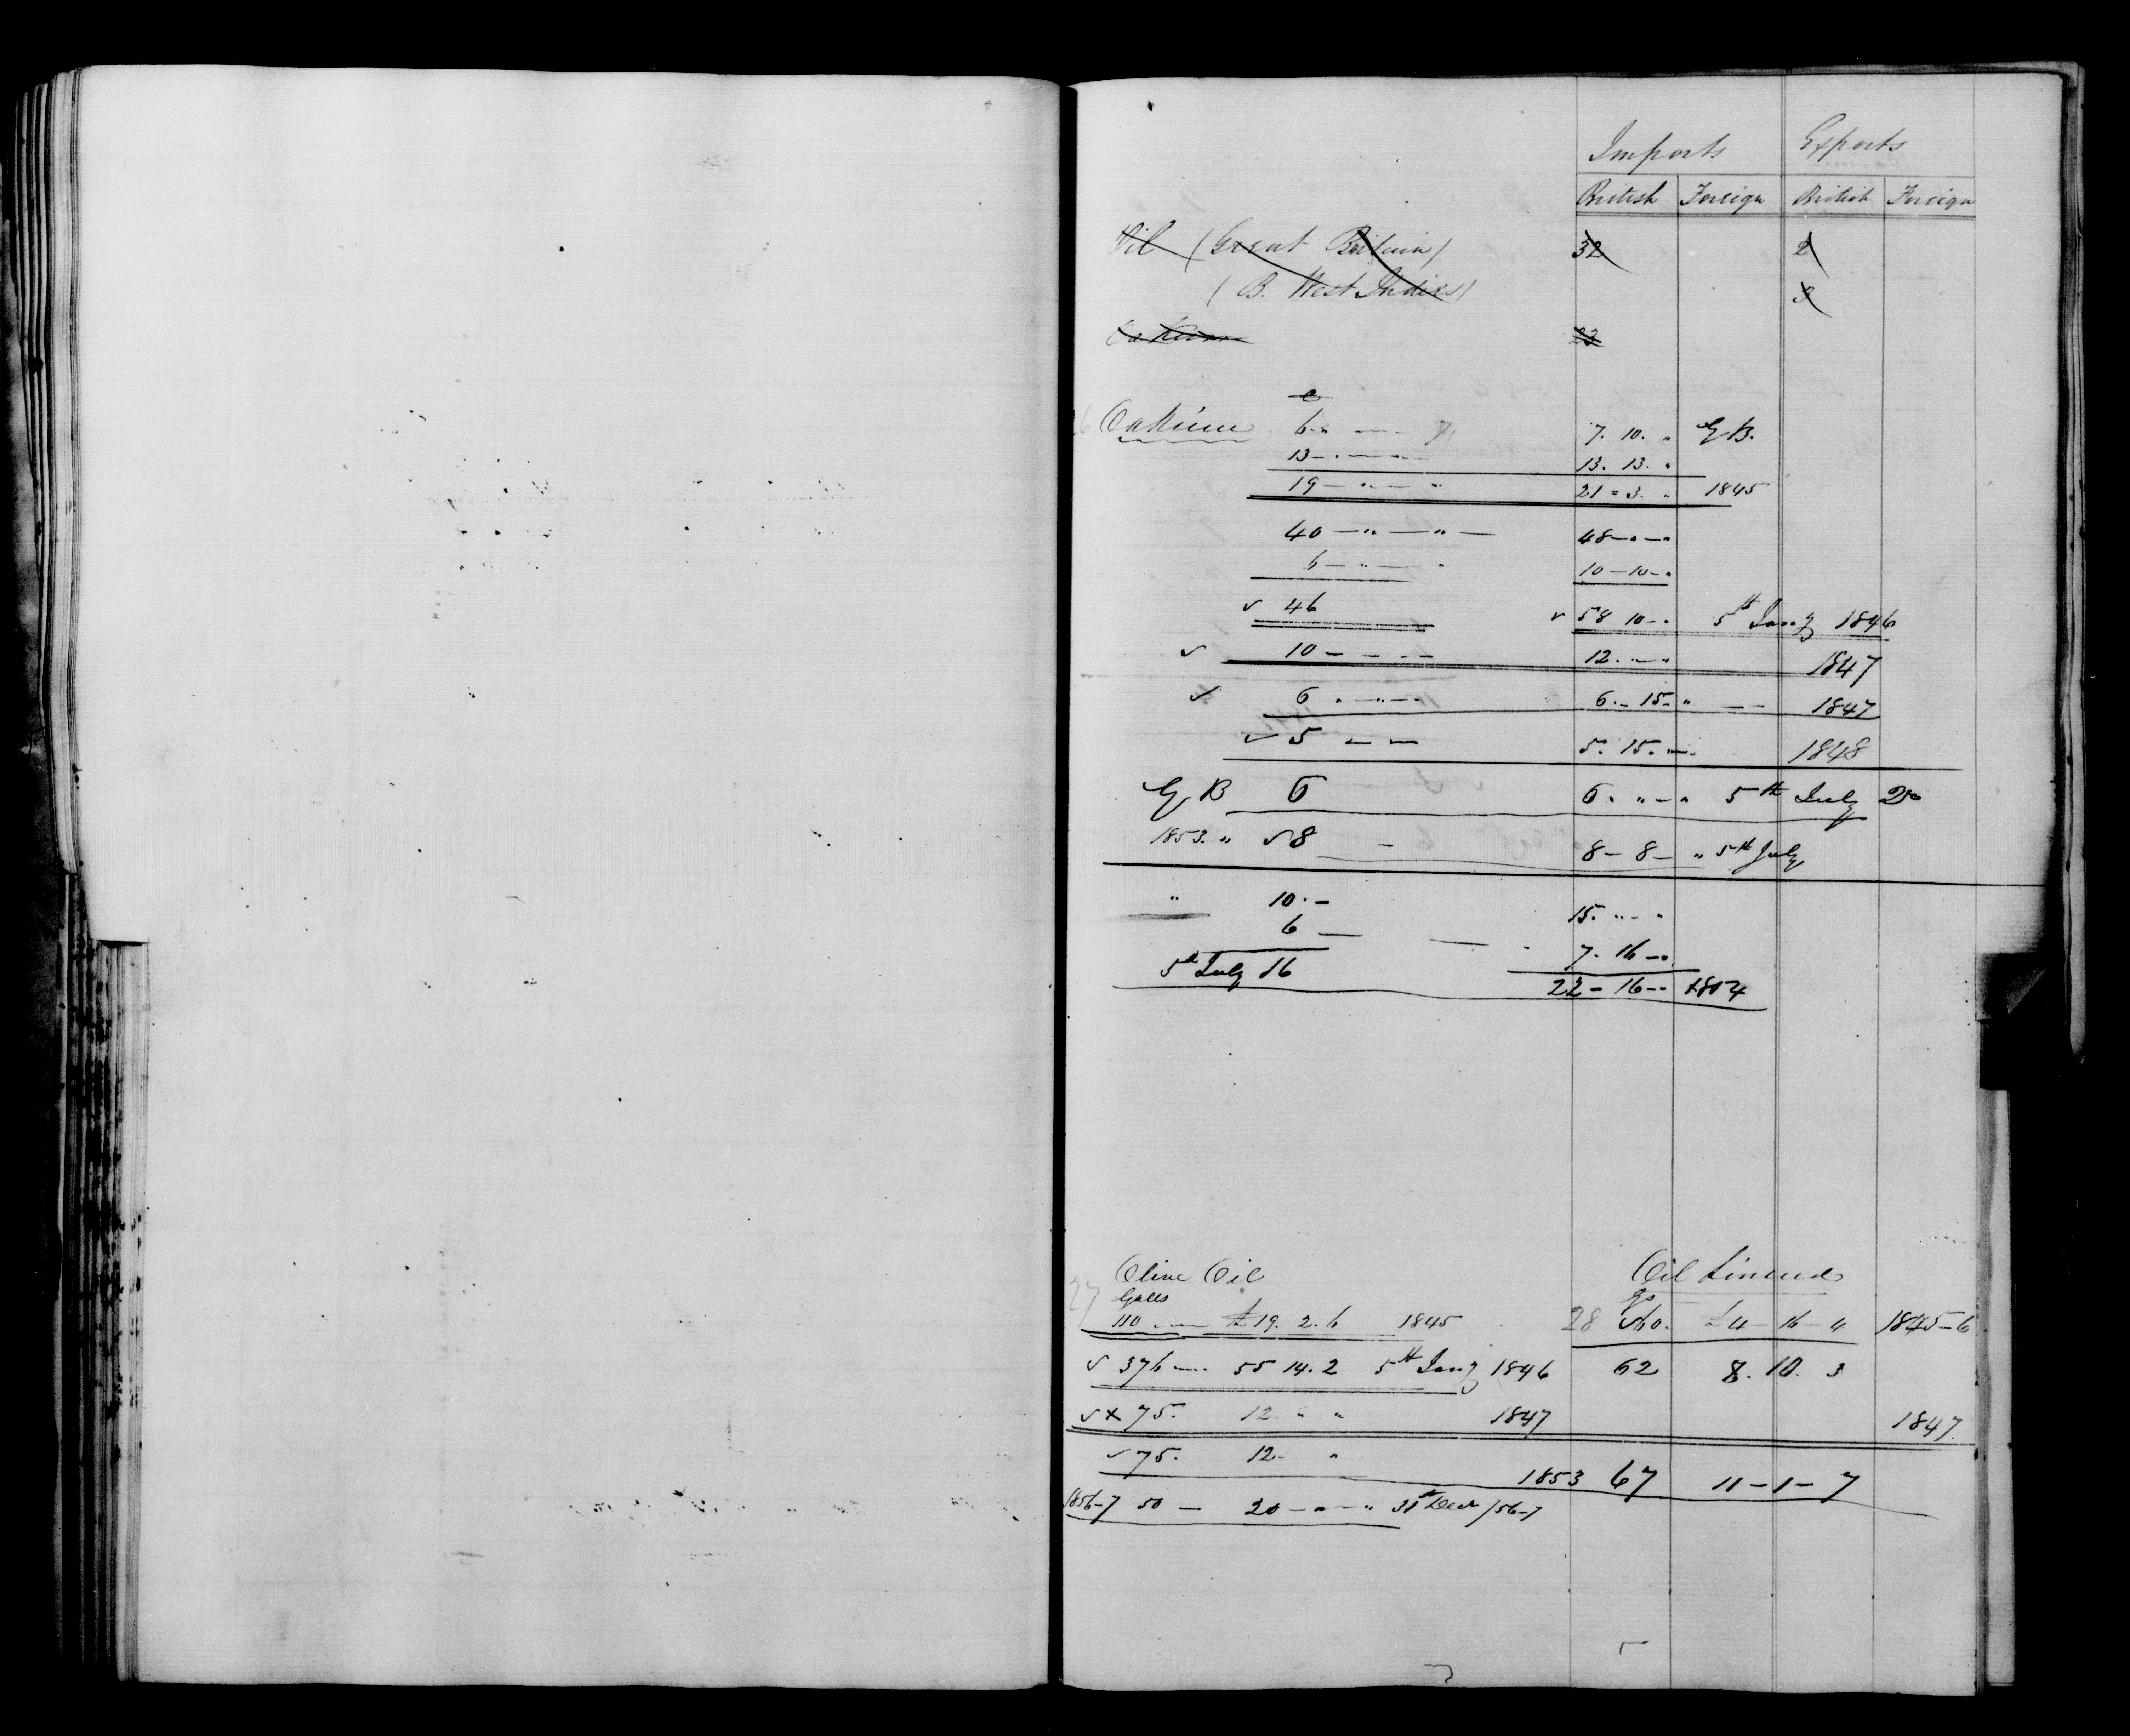 Imports Exports
British Foreign British Foreign
Oil (Great Britain) 32 2
(B. West Indies)
Oakum 23
26 Oakum 6 " — 7. 10. " G B.
13 — " — " 13. 13. "
19 — " — " 21 = 3. " 1845
40 — " — " — 48 — " — "
6 — " — " 10 — 10 — "
✓ 46 ✓ 58 10 — " 5th Jany 1846
✓ 10 — — — — 12. " — " 1847
✓ 6 " — " — " 6. — 15 — " — — 1847
✓ 5 — — 5. 15. " — 1848
G B 6 6. " — " 5th July 50
1853. " ✓ 8 — 8 — 8 — " 5th July
" 10. — 15. " — "
6 — — 7. 16 — "
5th July 16 22 — 16 — " 1854
27 Olive Oil
Galls
110 — £19. 2. 6 1845
✓ 376 — 55 14. 2 5th Jany 1846
✓ x 75. 12 " " 1847
✓ 75. 12 — "
1856-7 50 — 20 — " — " 31st Decr /56-7
Oil Linseed
Gs
28 40. £4 — 16 — " 1845-6
62 8. 10. 3
1847
1853 67 11 — 1 — 7